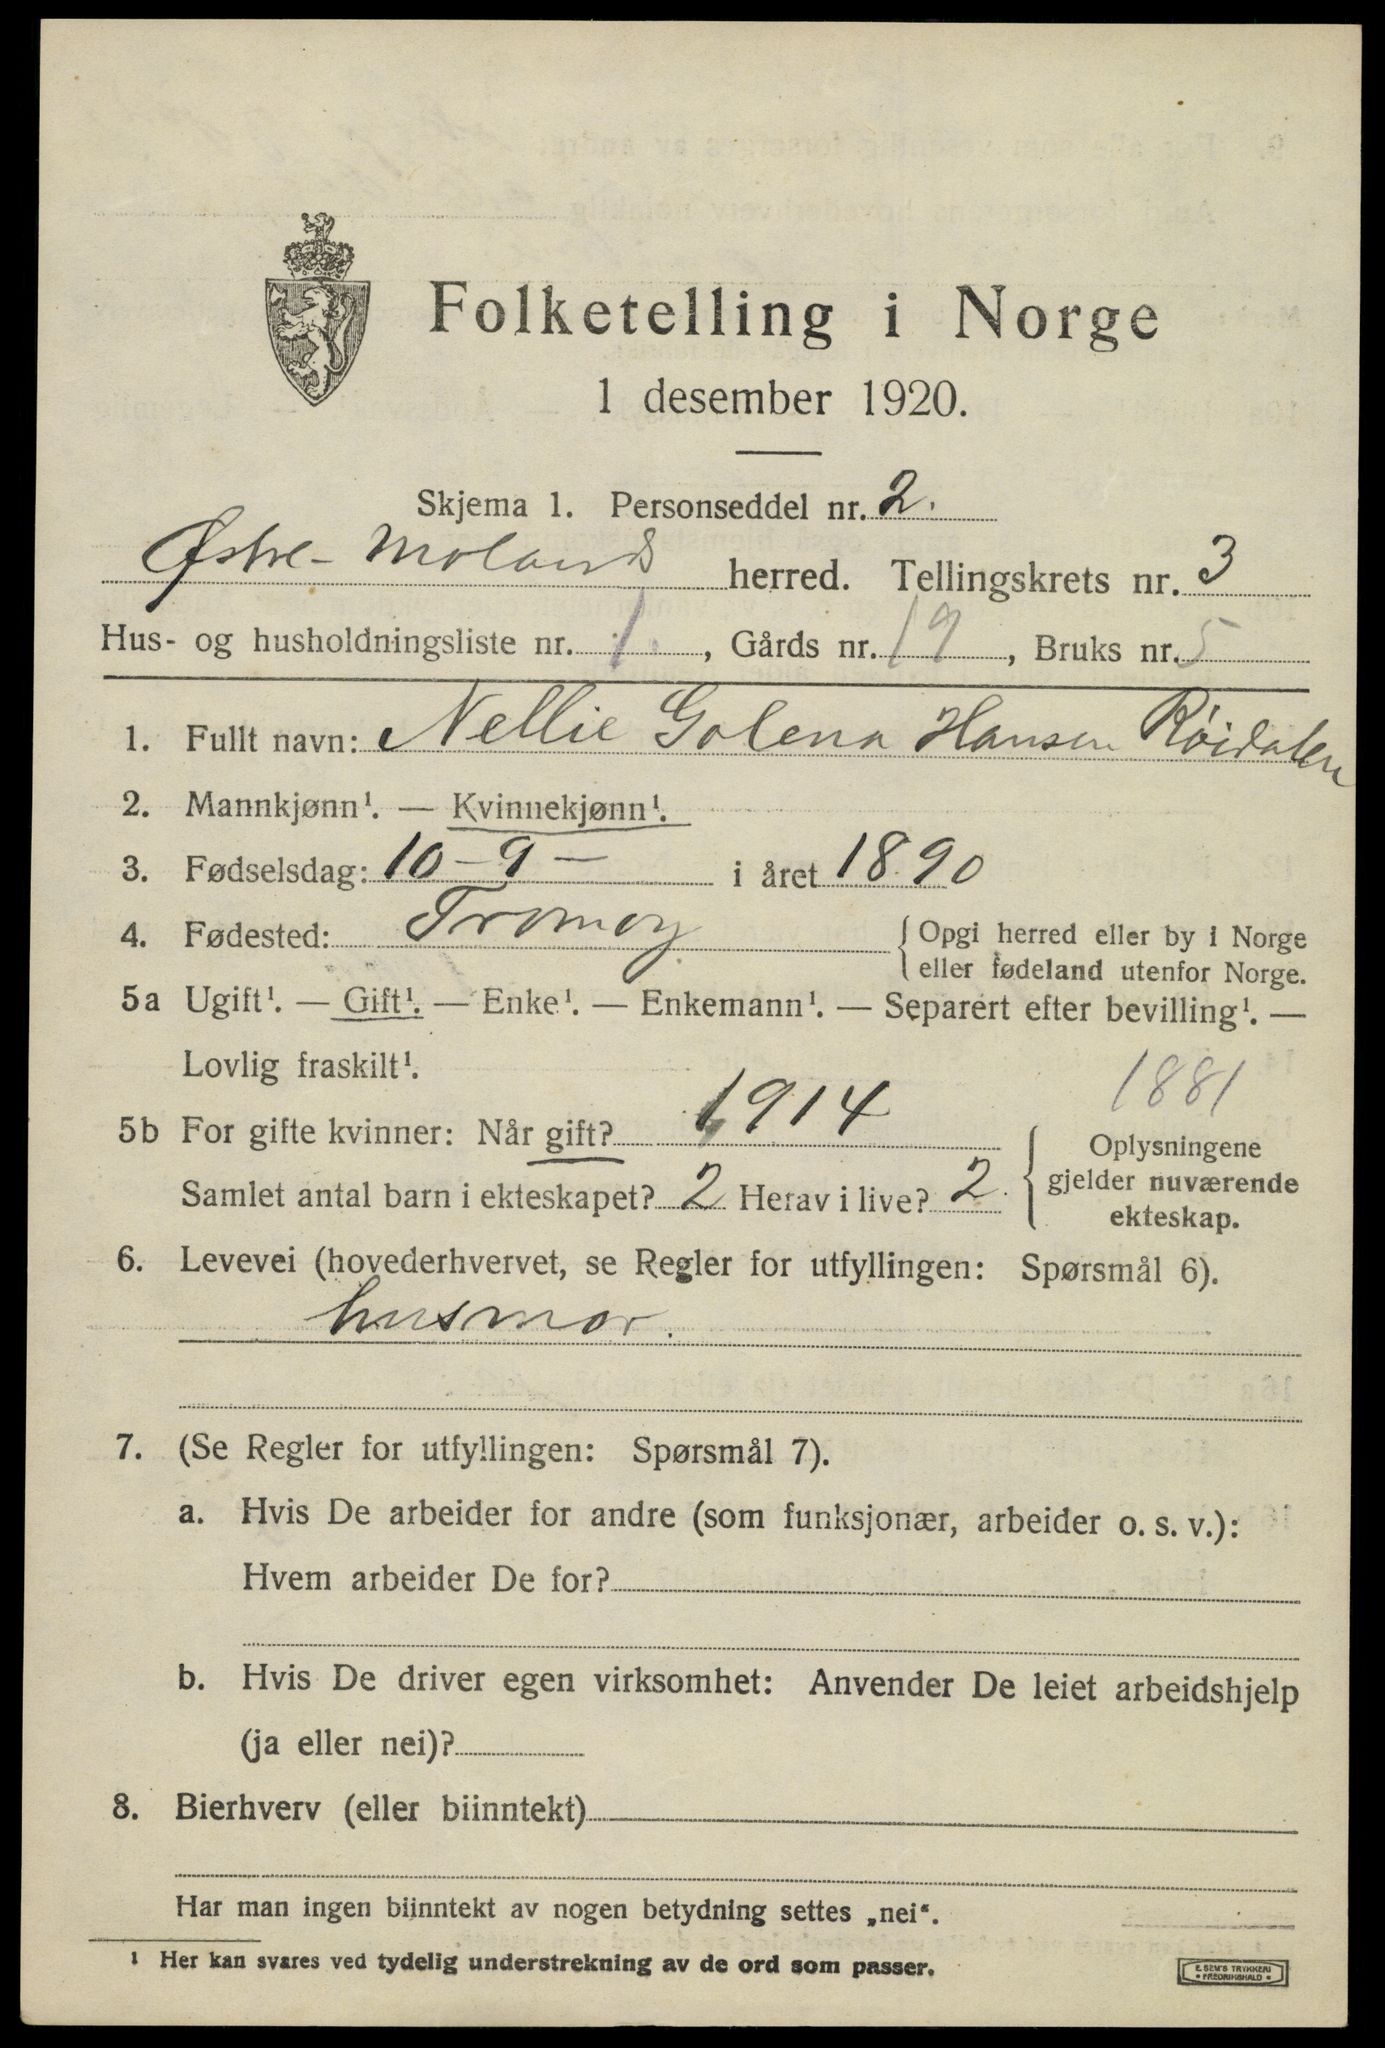 Folketelling i Norge
1 desember 1920.
Skjema 1. Personseddel nr. 2.
Østre-Molands herred. Tellingskrets nr. 3
Hus- og husholdningsliste nr. 1. , Gårds nr. 19 , Bruks nr. 5
1. Fullt navn: Nellie Golena Hansen Røidalen
2. Mannkjønn¹. — Kvinnekjønn¹.
3. Fødselsdag: 10 – 9 – i året 1890
4. Fødested: Tromøy. Opgi herred eller by i Norge
eller fødeland utenfor Norge.
5a Ugift¹. — Gift¹. — Enke¹. — Enkemann¹. — Separert efter bevilling¹. —
Lovlig fraskilt¹.
1881
5b For gifte kvinner: Når gift? 1914 Oplysningene
gjelder nuværende
ekteskap.
Samlet antal barn i ekteskapet? 2 Herav i live? 2.
6. Levevei (hovederhvervet, se Regler for utfyllingen: Spørsmål 6).
husmor.
7. (Se Regler for utfyllingen: Spørsmål 7).
a. Hvis De arbeider for andre (som funksjonær, arbeider o. s. v.):
Hvem arbeider De for?
b. Hvis De driver egen virksomhet: Anvender De leiet arbeidshjelp
(ja eller nei)?
8. Bierhverv (eller biinntekt)
Har man ingen biinntekt av nogen betydning settes „nei“.
¹ Her kan svares ved tydelig understrekning av de ord som passer.
E. SEM'S TRYKKERI
• FREDRIKSHALD •